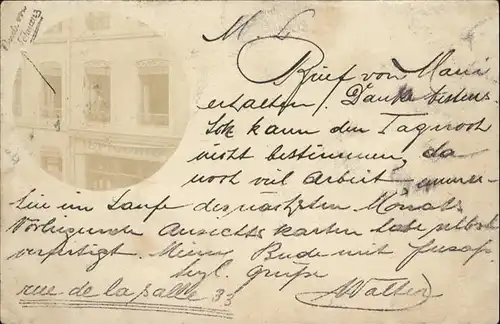 Bude von
M. L.
Brief von Mani
erhalten. Danke bestens
kann den Tag noch
nicht bestimmen, da
noch viel Arbeit
im Laufe des nächsten Monats
Vorliegende Ansichtskarten habe selbst
verfertigt. Meine Bude mit
Grüße
rue de la Salle 33
Walter